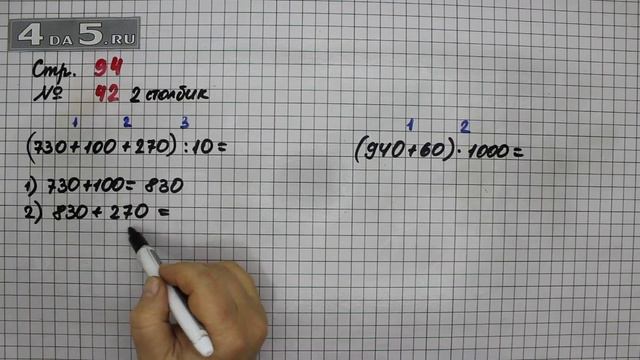 4DA5.RU
Стр. 94
№ 42 2 столбик
1 2 3
(730+100+270):10=
1) 730+100= 830
2) 830+270 =
1 2
(940+60)·1000=